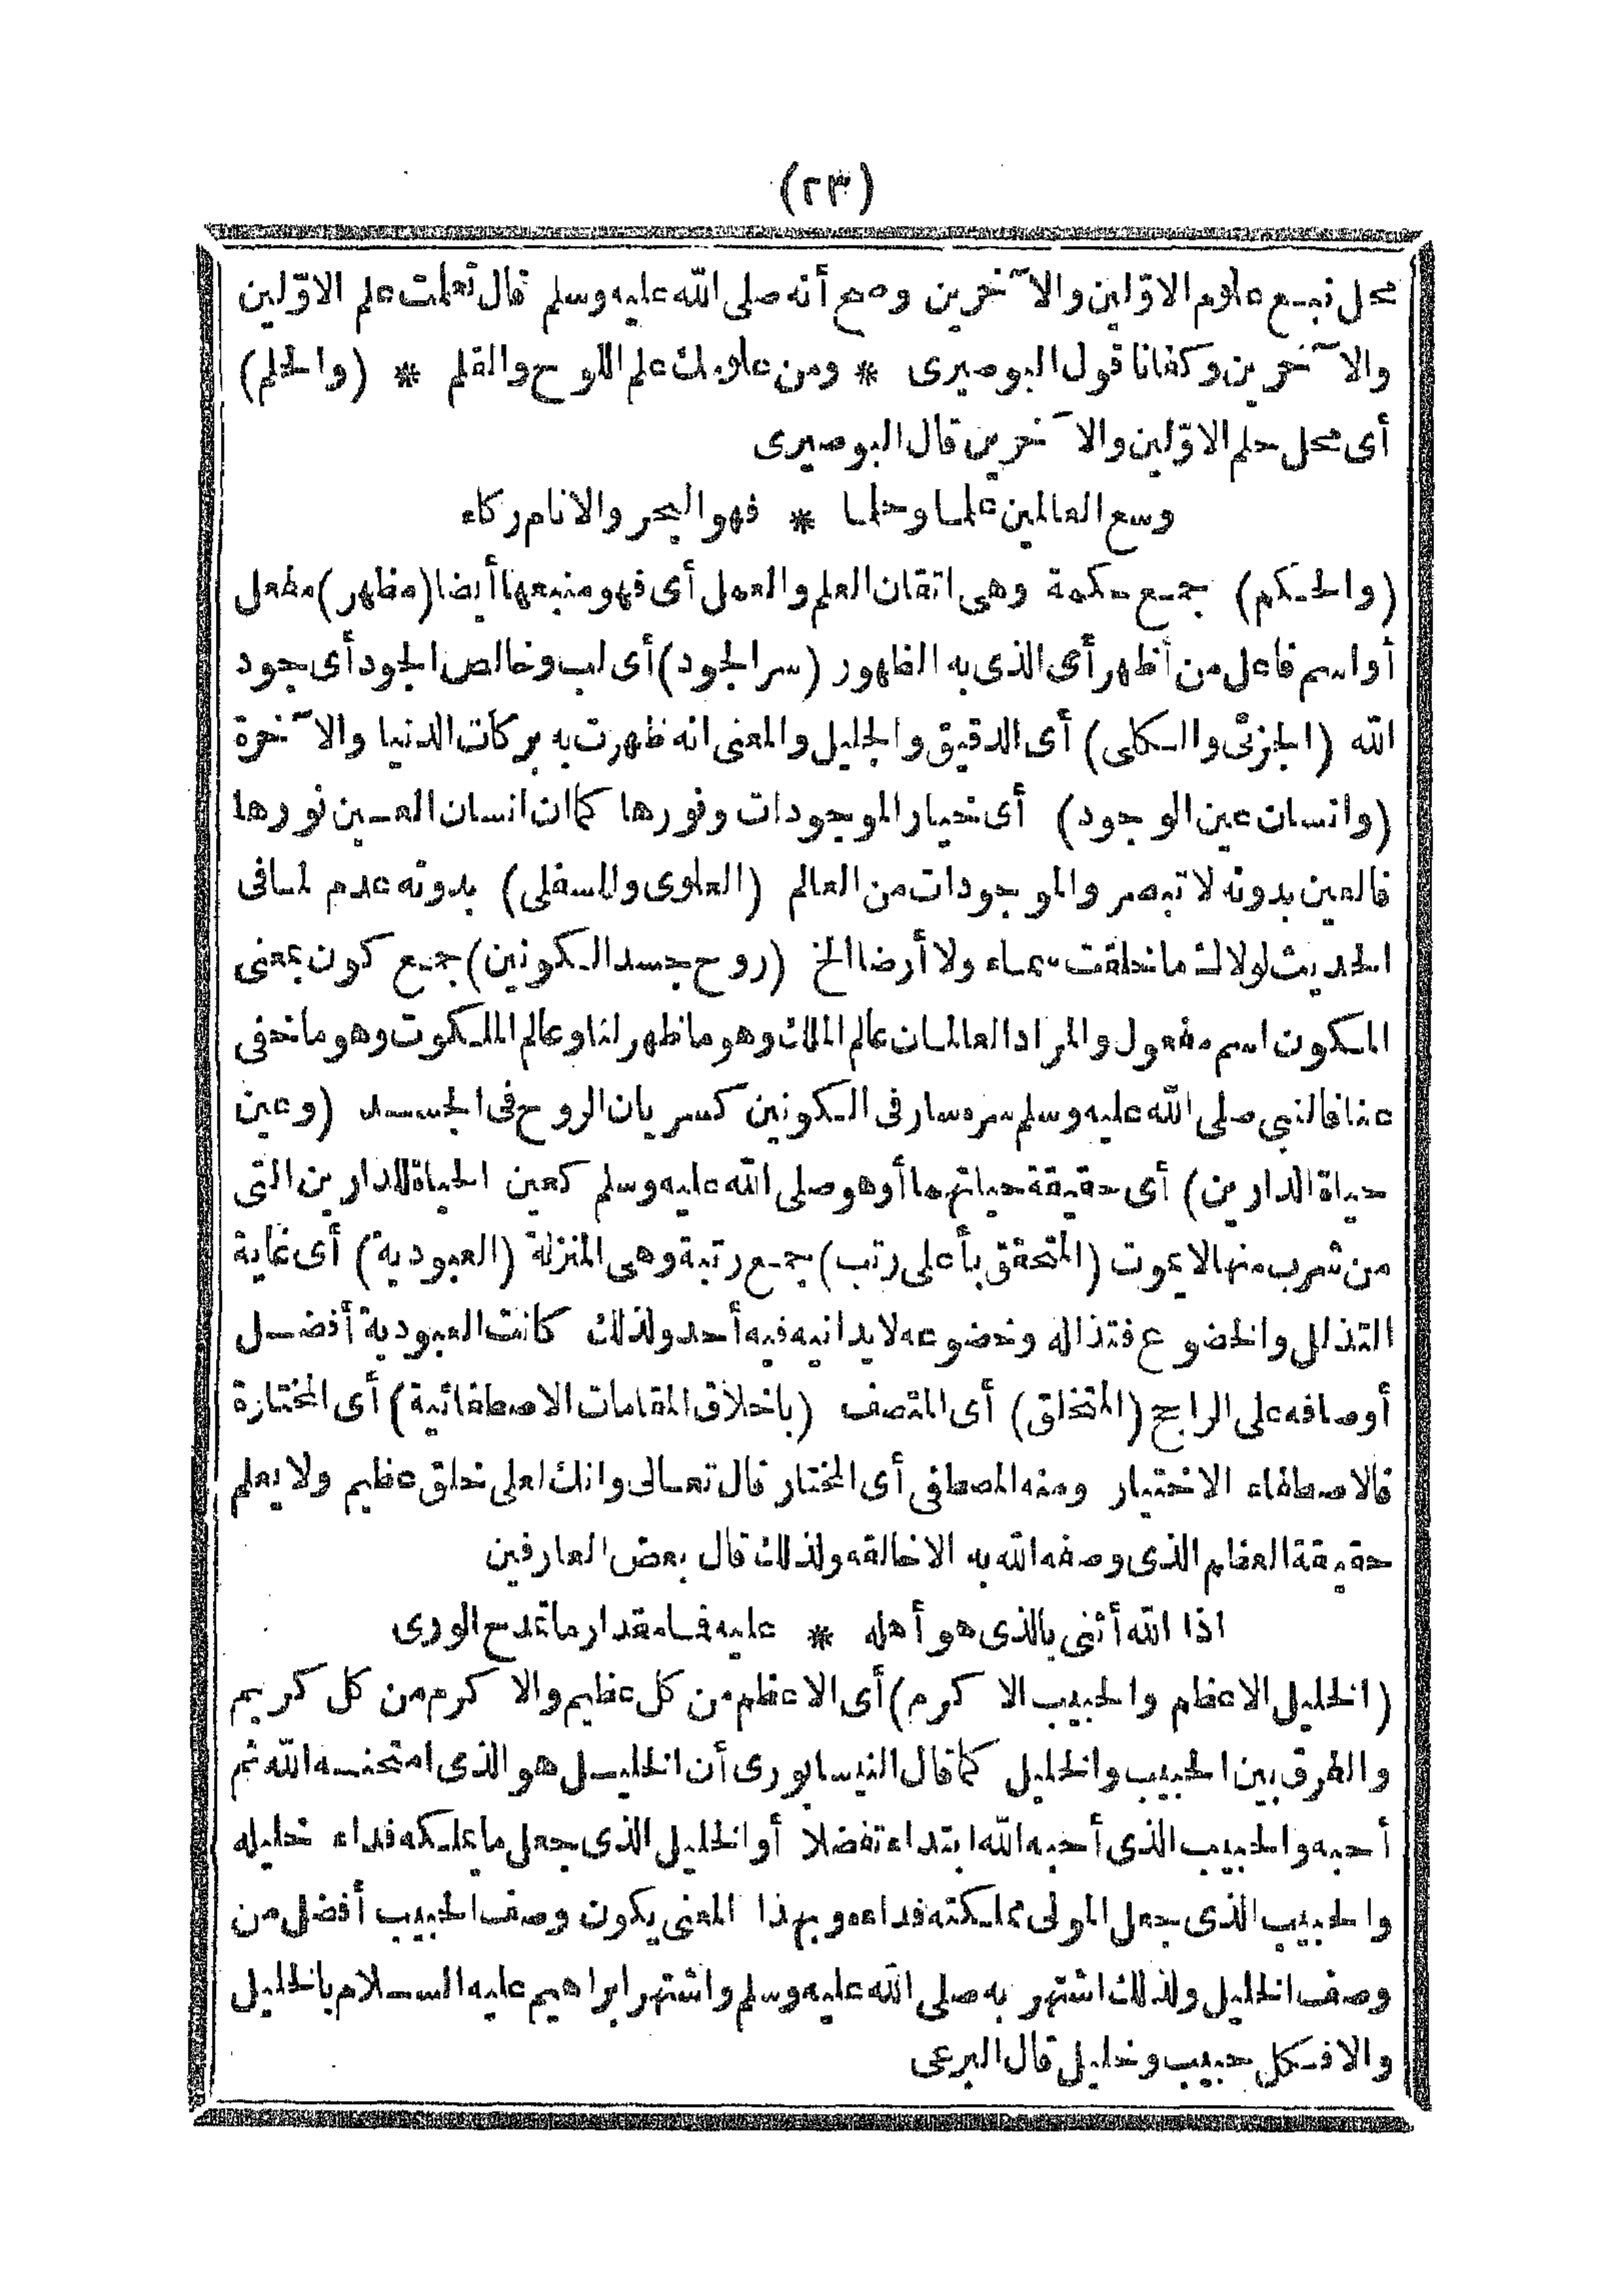 (٢٣)
محل نبع علوم الاوّلين والآخرين وصح أنه صلى الله عليه وسلم قال تعلمت علم الاوّلين
والآخرين وكفانا قول البوصيرى * ومن علومك علم اللوح والقلم * (والحلم)
أى محل حلم الاوّلين والآخرين قال البوصيرى
وسع العالمين علما وحلما * فهو البحر والانام ركاء
(والحكم) جمع حكمة وهى اتقان العلم والعمل أى فهو منبعها أيضا (مظهر) مفعل
أو اسم فاعل من أظهر أى الذى به الظهور (سر الجود) أى لب وخالص الجود أى جود
الله (الجزئى والكلى) أى الدقيق والجليل والمعنى انه ظهرت به بركات الدنيا والآخرة
(وانسان عين الوجود) أى خيار الموجودات ونورها كما ان انسان العين نورها
فالعين بدونه لا تبصر والموجودات من العالم (العلوى والسفلى) بدونه عدم لما فى
الحديث لولاك ما خلقت سماء ولا أرضا الخ (روح جسد الكونين) جمع كون بمعنى
المكون اسم مفعول والمراد العالمان عالم الملك وهو ما ظهر لنا وعالم الملكوت وهو ما خفى
عنا فالنبي صلى الله عليه وسلم سره سار فى الكونين كسريان الروح فى الجسد (وعين
حياة الدارين) أى حقيقة حياتهما أو هو صلى الله عليه وسلم كعين الحياة للدارين التى
من شرب منها لا يموت (المتحقق بأعلى رتب) جمع رتبة وهى المنزلة (العبودية) أى غاية
التذلل والخضوع فتذلله وخضوعه لا يدانيه فيه أحد ولذلك كانت العبودية أفضل
أوصافه على الراجح (المتخلق) أى المتصف (باخلاق المقامات الاصطفائية) أى المختارة
فالاصطفاء الاختيار ومنه المصطفى أى المختار قال تعالى وانك لعلى خلق عظيم ولا يعلم
حقيقة العظيم الذى وصفه الله به الا خالقه ولذلك قال بعض العارفين
اذا الله أثنى بالذى هو أهله * عليه فما مقدار ما تمدح الورى
(الخليل الاعظم والحبيب الاكرم) أى الاعظم من كل عظيم والاكرم من كل كريم
والفرق بين الحبيب والخليل كما قال النيسابورى أن الخليل هو الذى امتحنه الله ثم
أحبه والحبيب الذى أحبه الله ابتداء تفضلا أو الخليل الذى جعل ما يملكه فداء خليله
والحبيب الذى جعل المولى مملكته فداءه وبهذا المعنى يكون وصف الحبيب أفضل من
وصف الخليل ولذلك اشتهر به صلى الله عليه وسلم واشتهر ابراهيم عليه السلام بالخليل
والا فكل حبيب وخليل قال البرعى